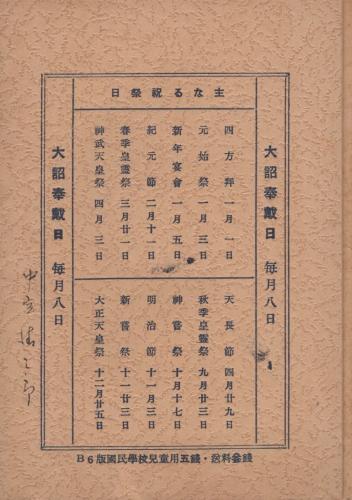 主なる祝祭日
大詔奉戴日 毎月八日
四方拜 一月一日
元始祭 一月三日
新年宴會 一月五日
紀元節 二月十一日
春季皇靈祭 三月廿一日
神武天皇祭 四月三日
天長節 四月廿九日
秋季皇靈祭 九月廿三日
神嘗祭 十月十七日
明治節 十一月三日
新嘗祭 十一月廿三日
大正天皇祭 十二月廿五日
大詔奉戴日 毎月八日
B6版國民學校兒童用五錢・送料壹錢